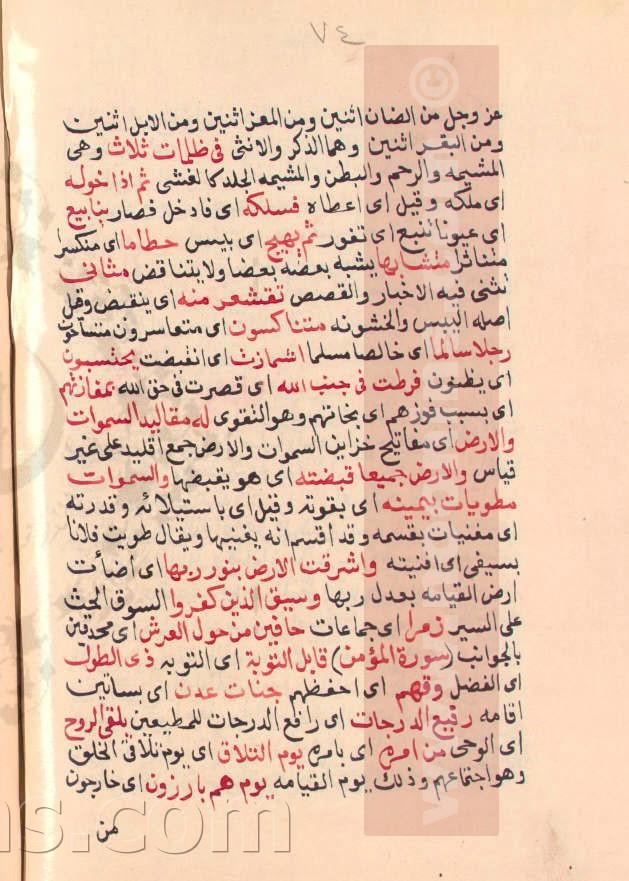 ٧٤
عز وجل من الضان اثنين ومن المعز اثنين ومن الابل اثنين
ومن البقر اثنين وهما الذكر والانثى فى ظلمات ثلاث وهى
المشيمه والرحم والبطن والمشيمه الجلد كالغشى ثم اذا خوله
اى ملكه وقيل اى اعطاه فسلكه اى فادخل فصار ينابيع
اى عيونا تنبع اى تفور ثم يهيج اى يبيس حطاما اى منكسرا
متناثرا متشابها يشبه بعضه بعضا ولا يتناقض مثانى
تثنى فيه الاخبار والقصص تقشعر منه اى ينقبض وقيل
اصله اليبس والخشونه متشاكسون اى متعاسرون
رجلا سالما اى خالصا مسلما اشمازت اى انقبضت يحتسبون
اى يظنون فرطت فى جنب الله اى قصرت فى حق الله بمفازتهم
اى بسبب فوزهم اى بخاتهم وهو التقوى له مقاليد السموات
والارض اى مفاتيح خزاين السموات والارض جمع اقليد على غير
قياس والارض جميعا قبضته اى هو يقبضها والسموات
مطويات بيمينه اى بقوته وقيل اى باستيلائه وقدرته
اى مفنيات بقسمه وقد اقسم انه يفنيها ويقال طويت فلانا
بسيفى اى افنيته واشرقت الارض بنور ربها اى اضأت
ارض القيامه بعدل ربها وسيق الذين كفروا السوق الحيث
على السير زمرا اى جماعات حافين من حول العرش اى محدقين
بالجوانب (سورة المؤمن) قابل التوبة اى التوبه ذى الطول
اى الفضل وقهم اى احفظهم جنات عدن اى بساتين
اقامه رفيع الدرجات اى رافع الدرجات للمطيعين يلقى الروح
اى الوحى من امره اى بامره يوم التلاق اى يوم تلاقى الخلق
وهو اجتماعهم وذلك يوم القيامه يوم هم بارزون اى خارجون
من